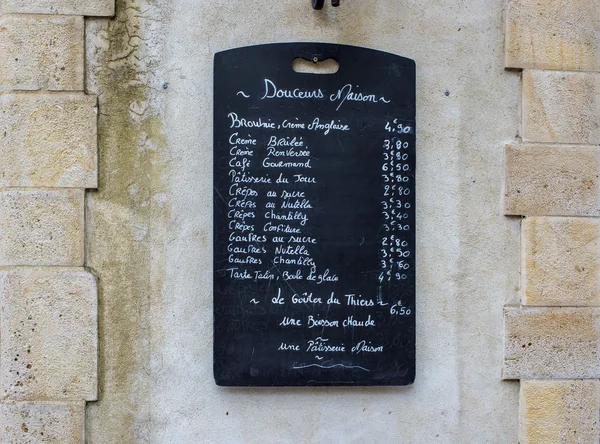 ~ Douceurs Maison ~
Brownie, Crème Anglaise 4,€90
Crème Brûlée 3,€80
Crème Renversée 3,€80
Café Gourmand 6,€50
Pâtisserie du Jour 3,€80
Crêpes au sucre 2,€80
Crêpes au Nutella 3,€30
Crêpes Chantilly 3,€40
Crêpes Confiture 3,€30
Gaufres au sucre 2,€80
Gaufres Nutella 3,€50
Gaufres Chantilly 3,€60
Tarte Tatin, Boule de glace 4,€90
~ Le Goûter du Thiers ~ 6,€50
une Boisson Chaude
une Pâtisserie Maison